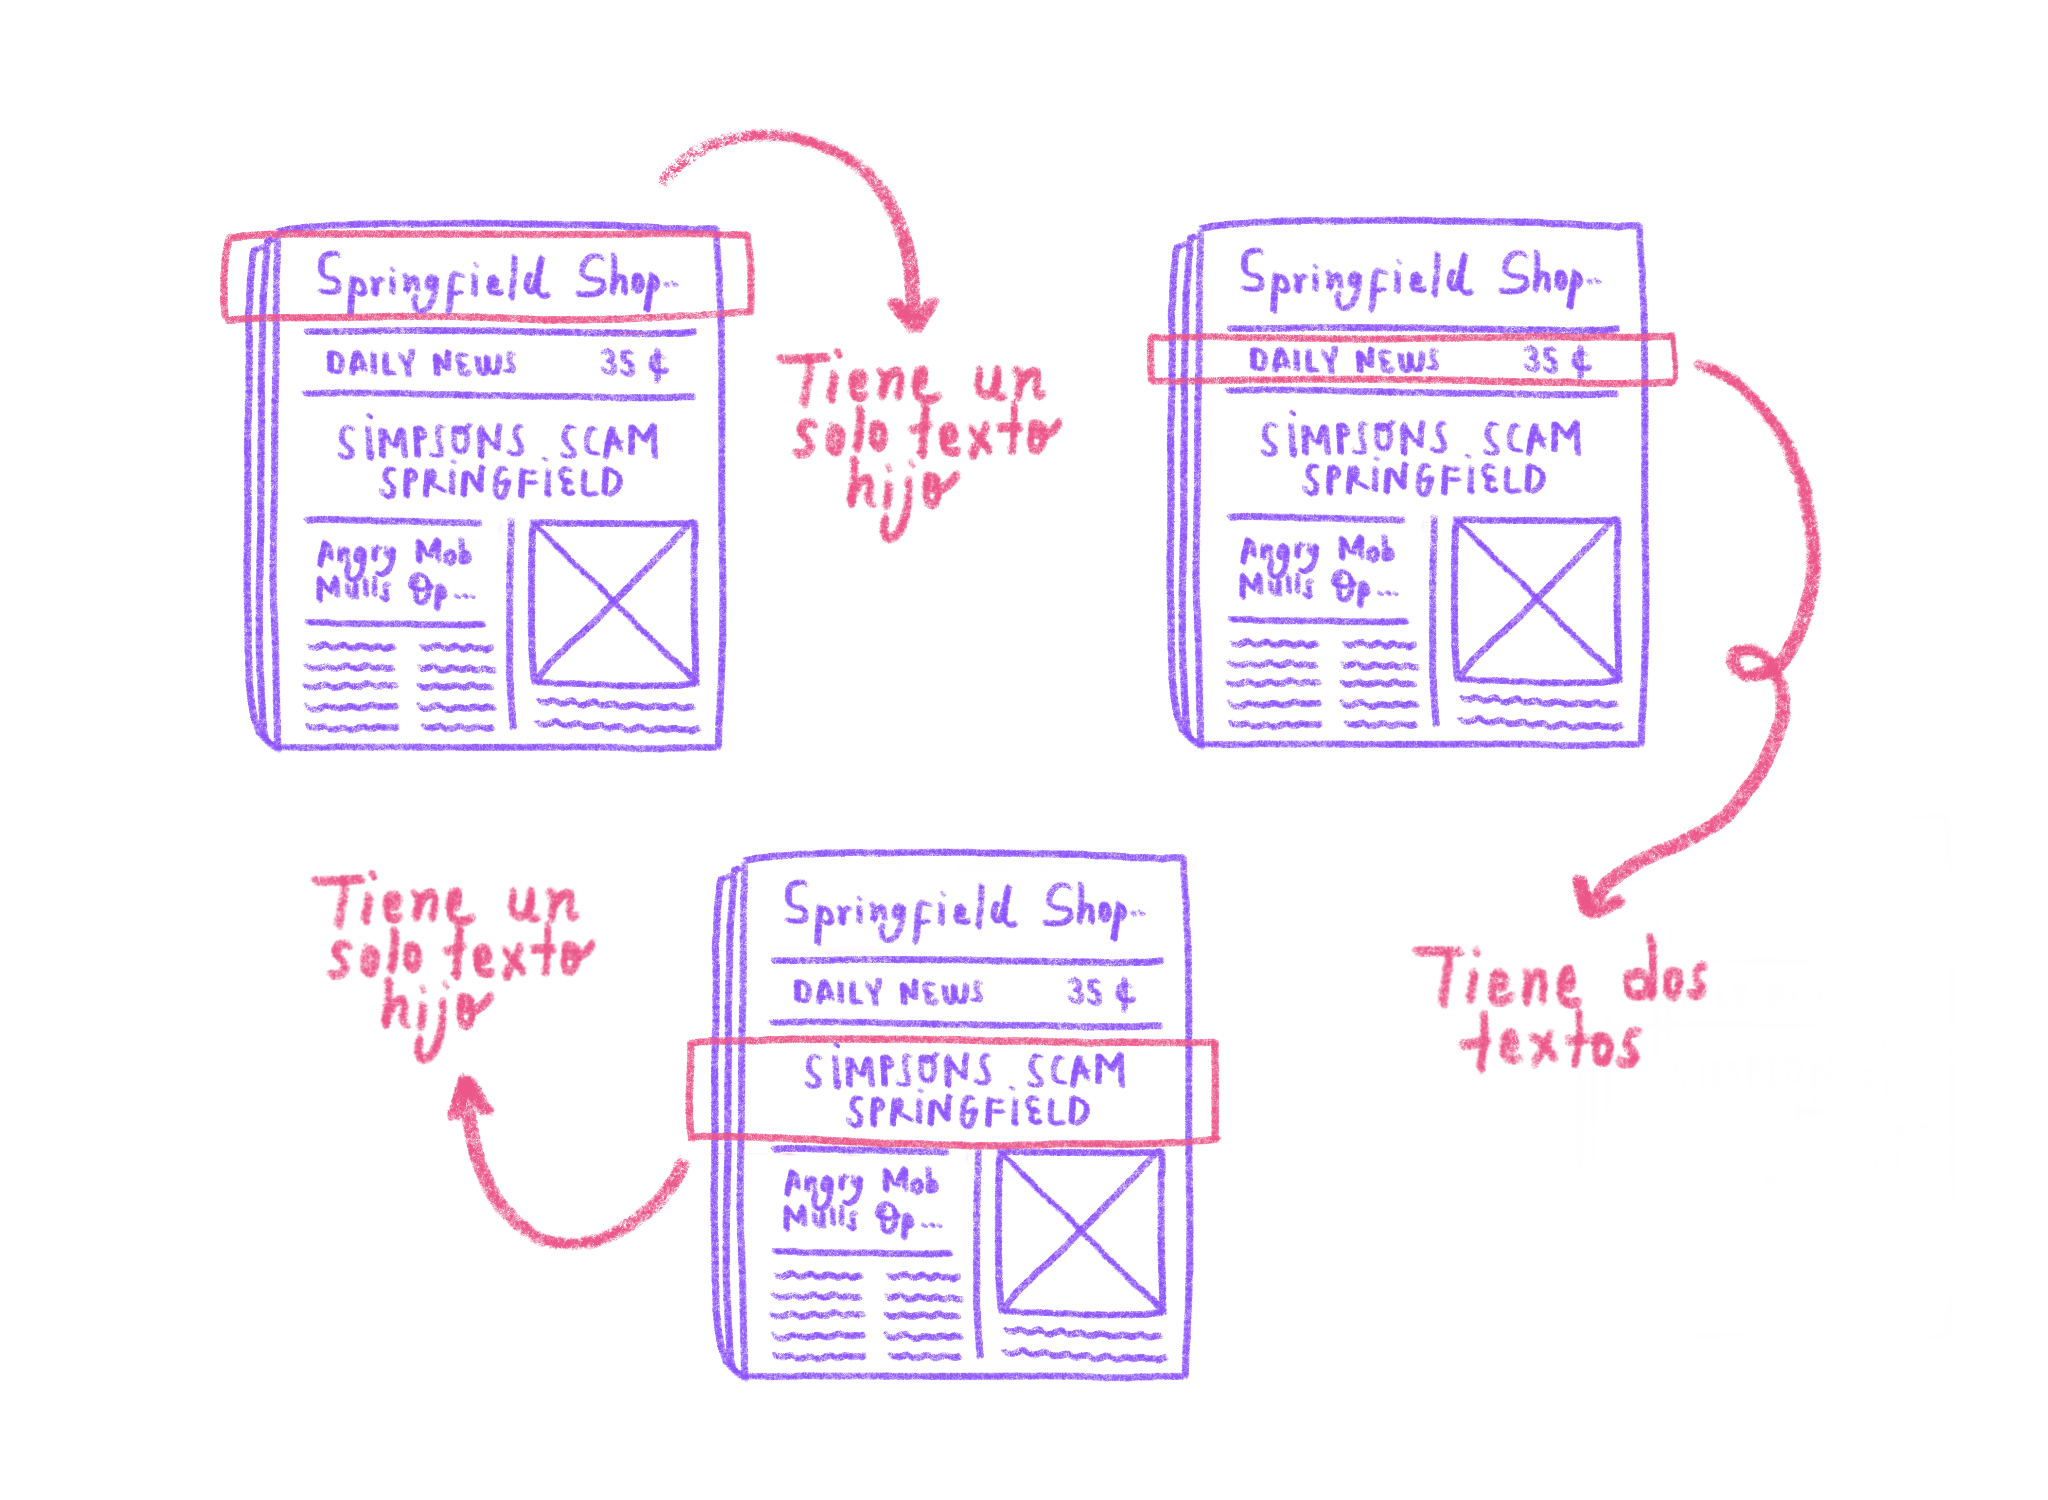 Springfield Shop...
DAILY NEWS 35 ¢
SIMPSONS SCAM
SPRINGFIELD
Angry Mob
Mulls Op...
Tiene un
solo texto
hijo
Springfield Shop...
DAILY NEWS 35 ¢
SIMPSONS SCAM
SPRINGFIELD
Angry Mob
Mulls Op...
Tiene dos
textos
Tiene un
solo texto
hijo
Springfield Shop...
DAILY NEWS 35 ¢
SIMPSONS SCAM
SPRINGFIELD
Angry Mob
Mulls Op...